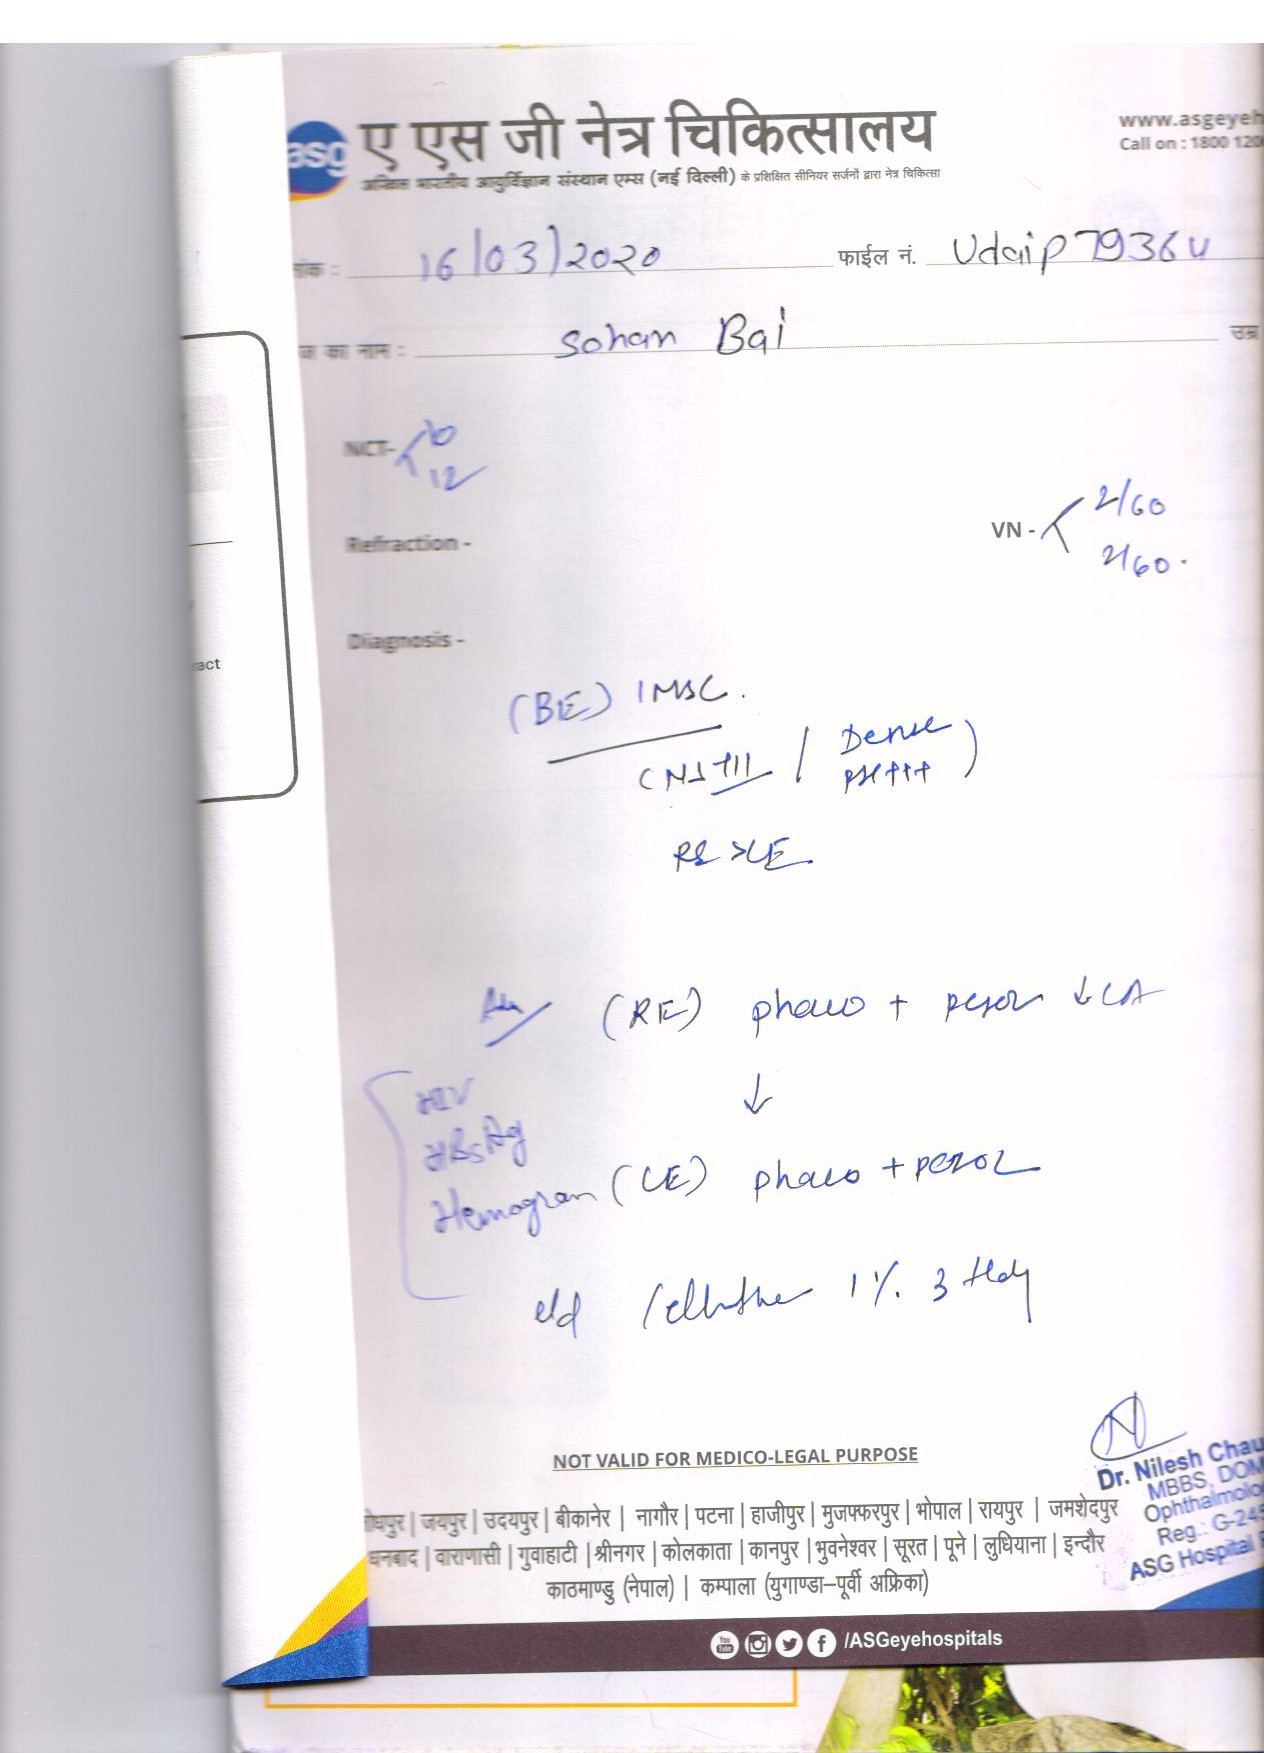 asg ए एस जी नेत्र चिकित्सालय
अखिल भारतीय आयुर्विज्ञान संस्थान एम्स (नई दिल्ली) के प्रशिक्षित सीनियर सर्जनों द्वारा नेत्र चिकित्सा
www.asgeyeh
Call on : 1800 120
नांक : 16/03/2020 फाईल नं. Udaip 7936u
ज का नाम : Sohan Bai उम्र
NCT- 10
12
VN - 2/60
2/60.
Refraction -
Diagnosis -
ract
(BE) IMSC.
(NS III / Dense
PSC+++ )
RE >LE.
Adv (RE) phaco + PCIOL ↓ LA
↓
HIV
HBsAg
Hemogram (LE) phaco + PCIOL
e/d 1% 3 t/day
NOT VALID FOR MEDICO-LEGAL PURPOSE
Dr. Nilesh Chau
MBBS, DOM
Ophthalmolo
Reg.: G-245
ASG Hospital P
ोधपुर | जयपुर | उदयपुर | बीकानेर | नागौर | पटना | हाजीपुर | मुजफ्फरपुर | भोपाल | रायपुर | जमशेदपुर
धनबाद | वाराणासी | गुवाहाटी | श्रीनगर | कोलकाता | कानपुर | भुवनेश्वर | सूरत | पूने | लुधियाना | इन्दौर
काठमाण्डु (नेपाल) | कम्पाला (युगाण्डा–पूर्वी अफ्रिका)
/ASGeyehospitals